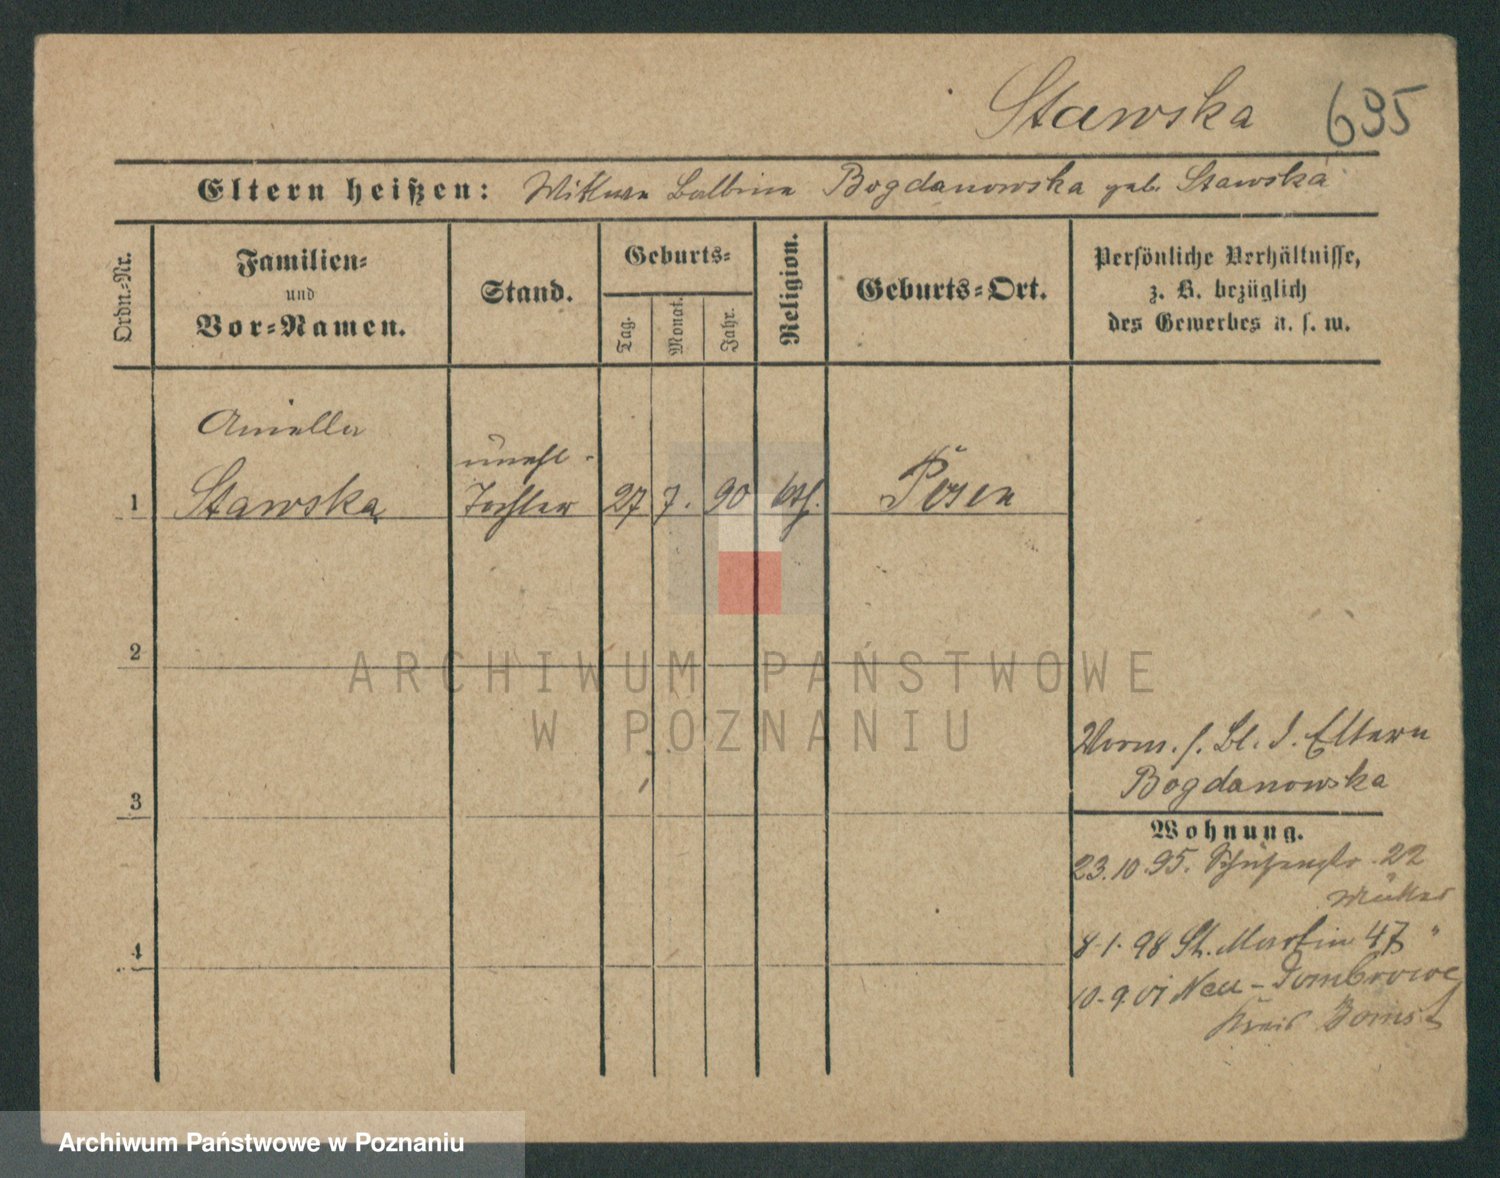 Stawska 695
Eltern heißen: Wittwe Balbina Bogdanowska geb. Stawska
Ordn.-Nr.
Familien-
und
Vor-Namen.
Stand.
Geburts-
Tag.
Monat.
Jahr.
Religion.
Geburts-Ort.
Persönliche Verhältnisse,
z. B. bezüglich
des Gewerbes u. s. w.
Aniella
unehl.
1 Stawska Tochter 27 7. 90 kth. Posen
2
3
4
Vorm. s. Bl. d. Eltern
Bogdanowska
Wohnung.
23.10.95. Schützenstr. 22
Mutter
8.1.98 St. Martin 47 "
10.9.01 Neu-Dombrowo
Kreis Bomst
ARCHIWUM PAŃSTWOWE
W POZNANIU
Archiwum Państwowe w Poznaniu